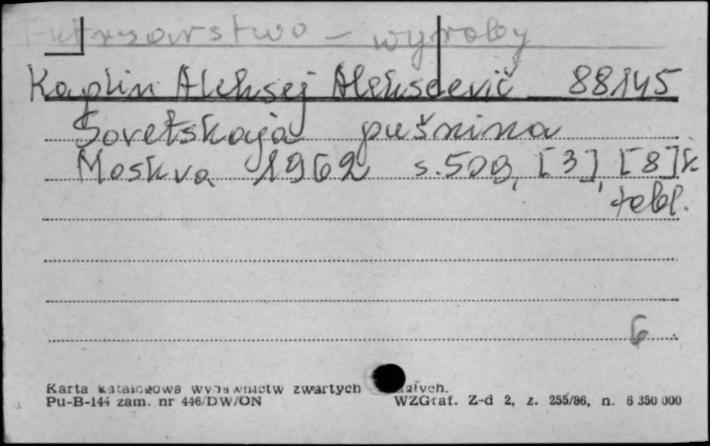 Futrzarstwo - wyroby
Kaplin Aleksej Alekseevič 88145
Sovetskaja pušnina
Moskva 1962 s.509, [3], [8] k.
tabl.
6
Karta katalogowa wydawnictw zwartych
Pu-B-144 zam. nr 446/DW/ON WZGraf. Z-d 2, z. 255/86, n. 6 350 000